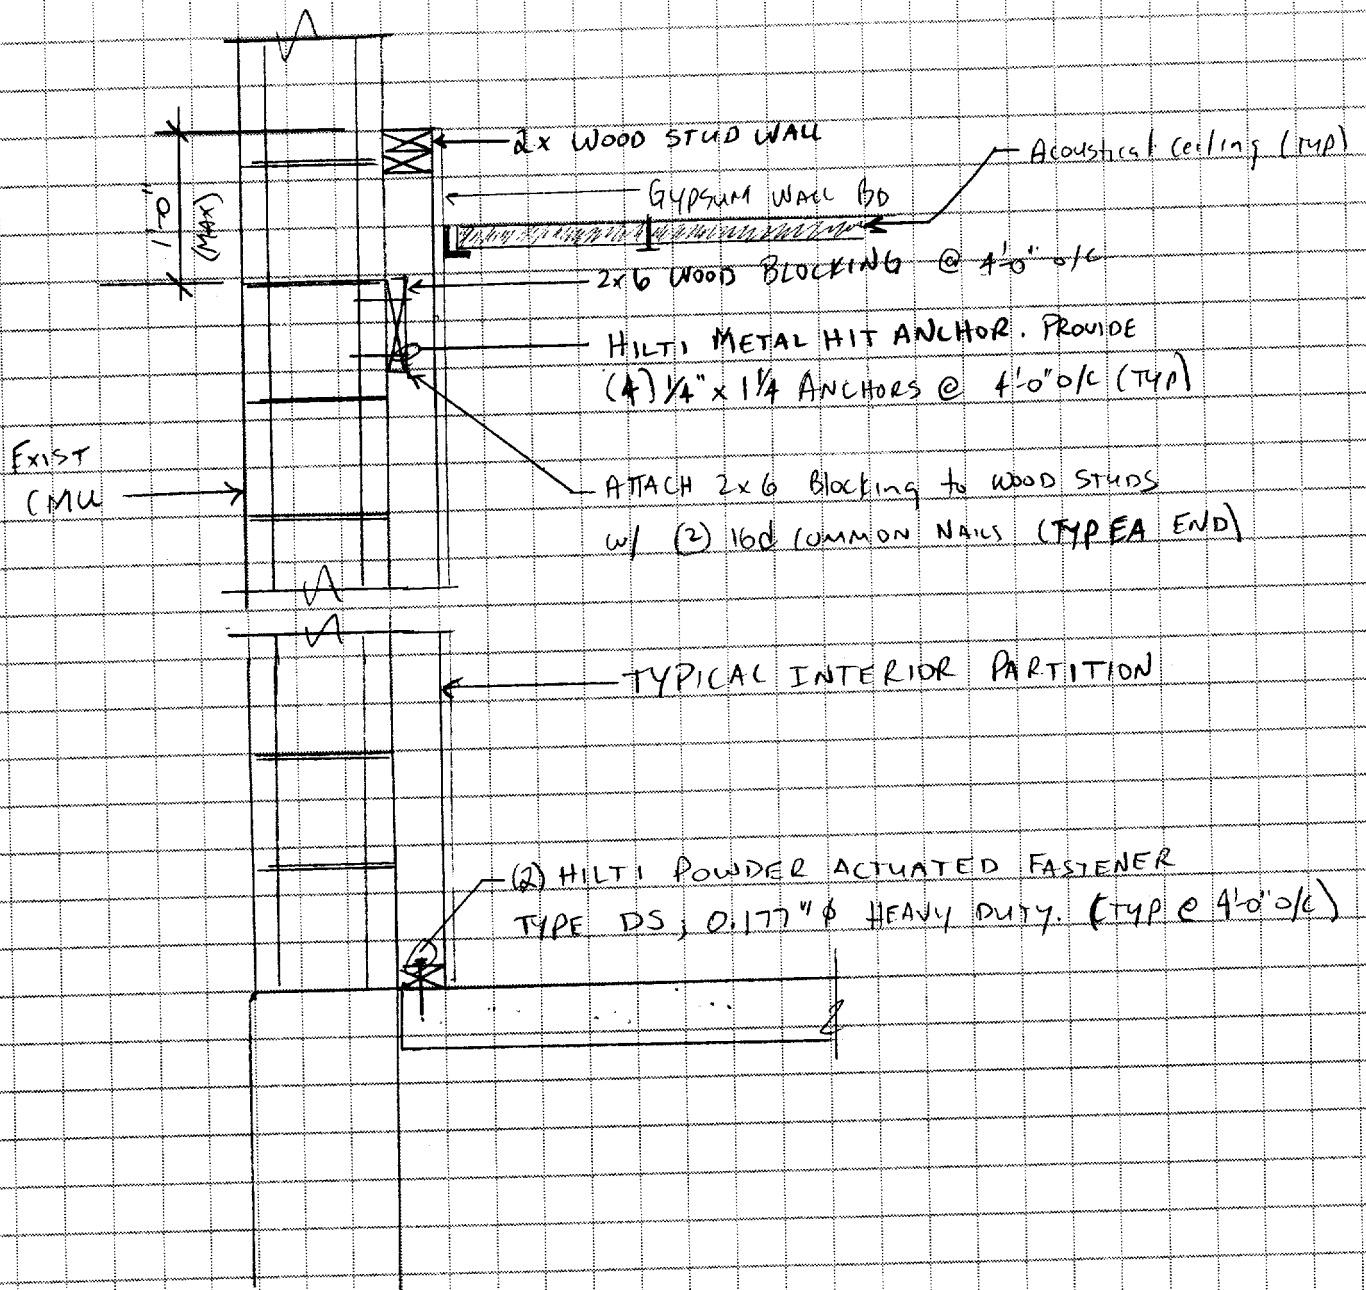 2x WOOD STUD WALL
Acoustical Ceiling (TYP)
GYPSUM WALL BD
1'-0"
(MAX)
2x6 WOOD BLOCKING @ 4'-0" o/c
HILTI METAL HIT ANCHOR. PROVIDE
(4) 1/4" x 1 1/4 ANCHORS @ 4'-0" o/c (TYP)
EXIST
CMU
ATTACH 2x6 Blocking to WOOD STUDS
w/ (2) 16d COMMON NAILS (TYP EA END)
TYPICAL INTERIOR PARTITION
(2) HILTI POWDER ACTUATED FASTENER
TYPE DS; 0.177"ϕ HEAVY DUTY. (TYP @ 4'-0" o/c)